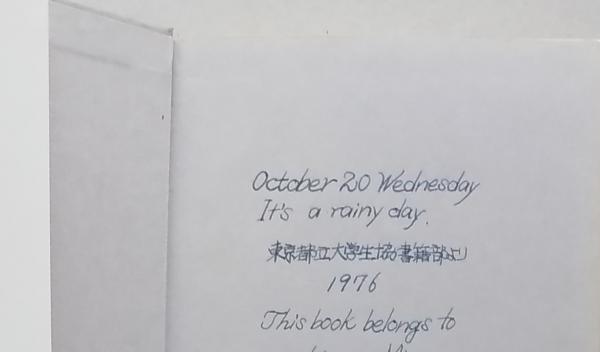 October 20 Wednesday
It's a rainy day.
東京都立大学生協書籍部より
1976
This book belongs to